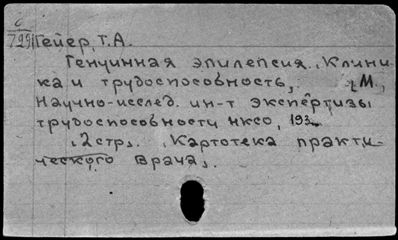 6
799
Гейер, Т.А.
Генуинная эпилепсия. Клини
ка и трудоспособность, М,
Научно-исслед. ин-т экспертизы
трудоспособности НКСО, 193
2 стр. Картотека практи
ческого врача.